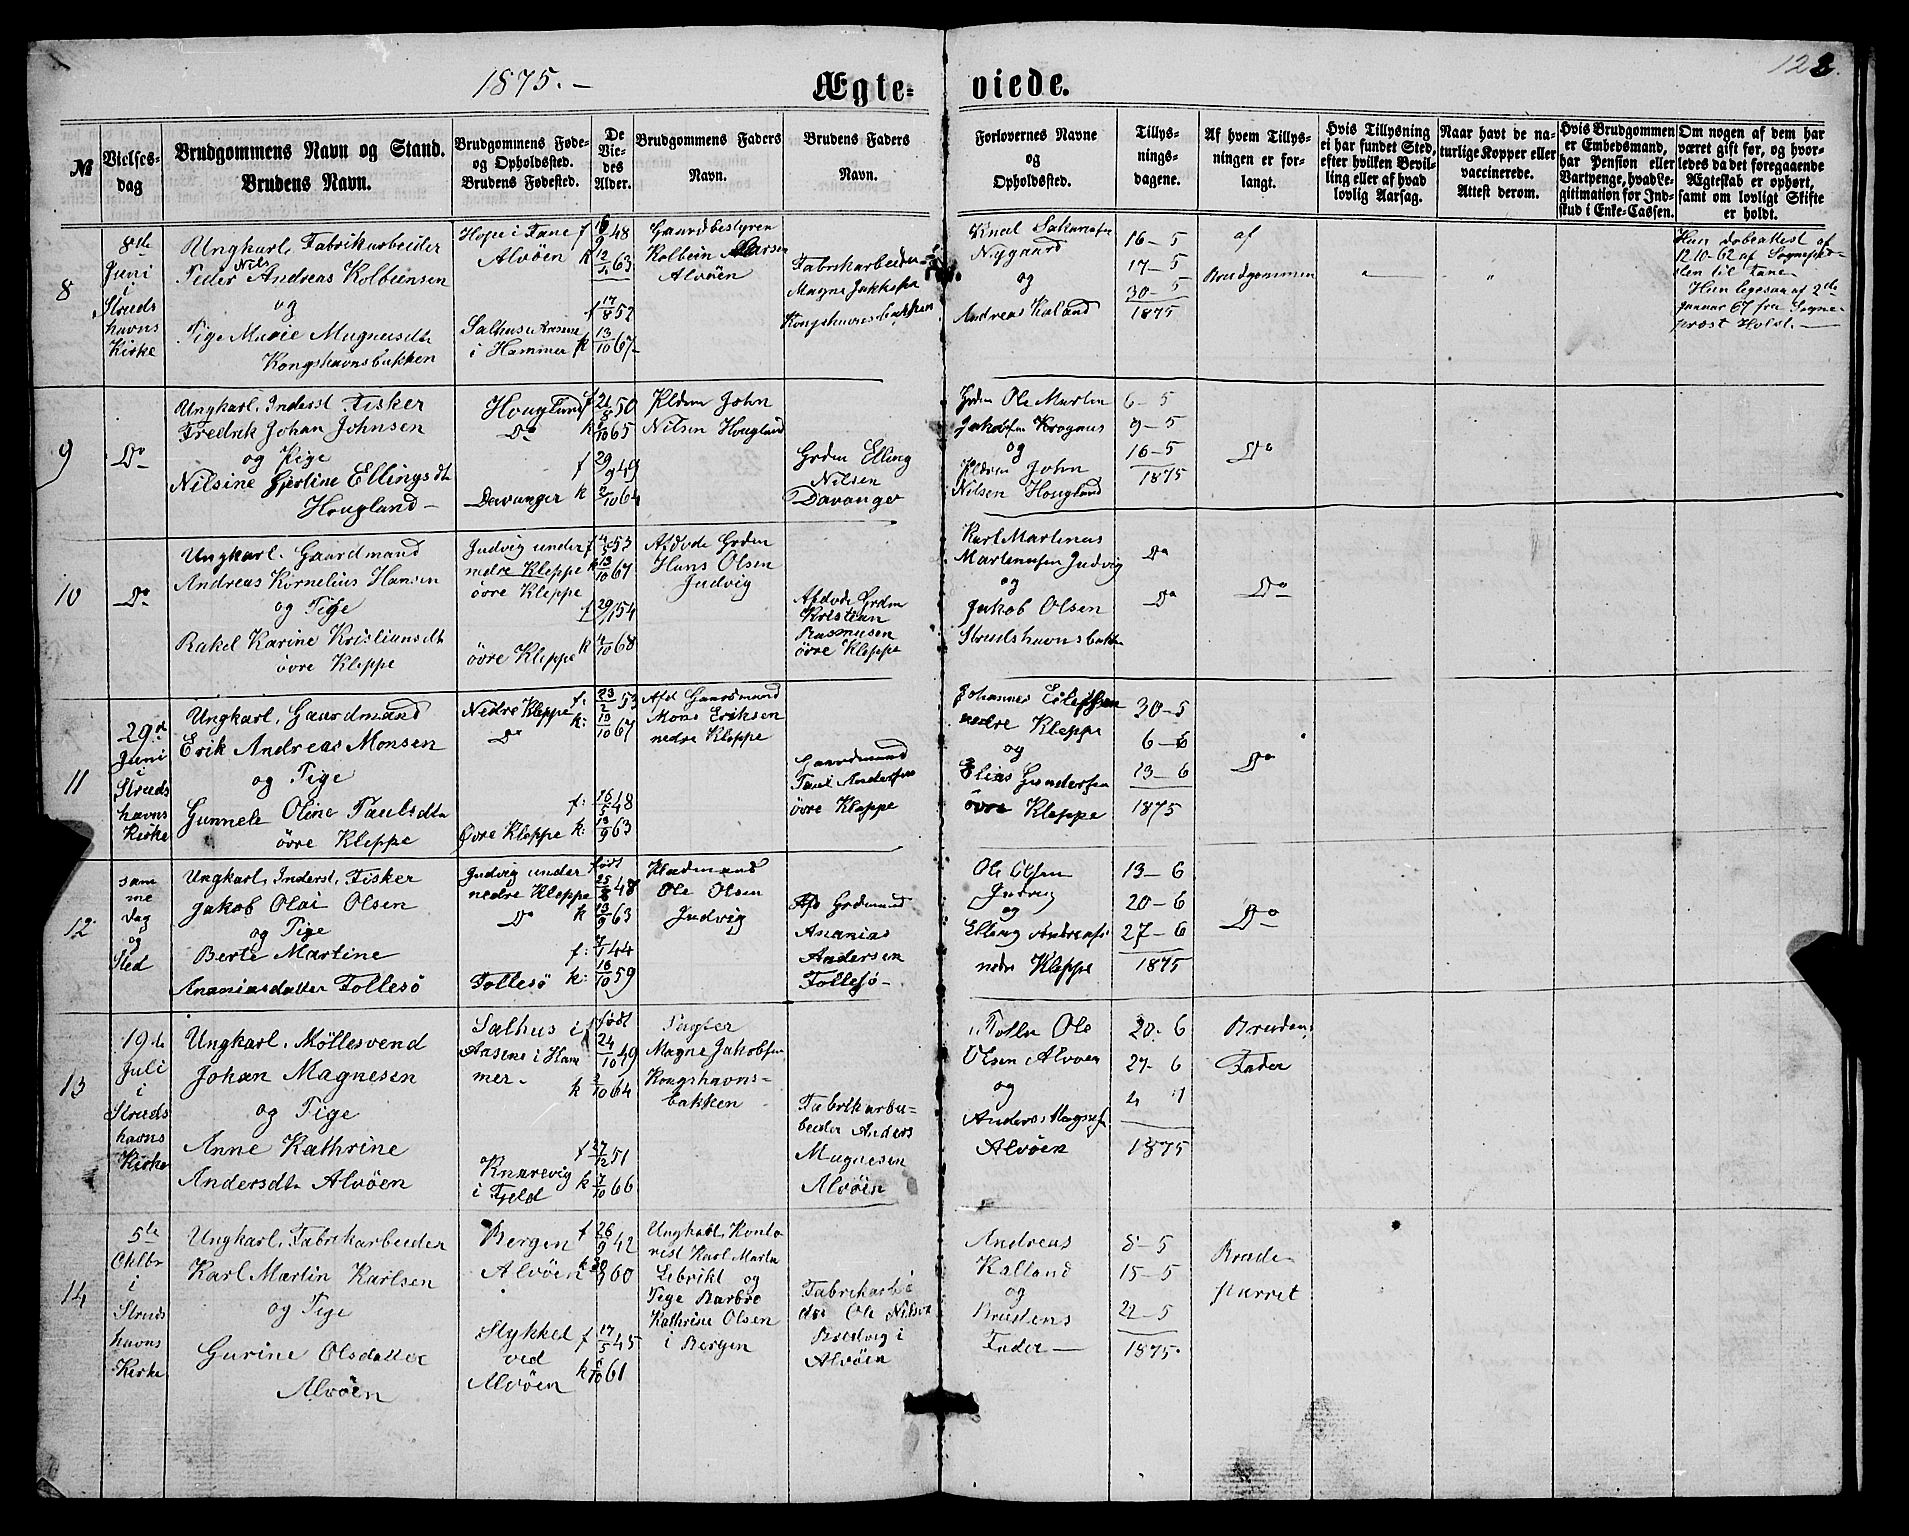 1875.-
Ægte-
viede.
122.
№
Vielses-
dag
Brudgommens Navn og Stand.
Brudens Navn.
Brudgommens Føde-
og Opholdssted.
Brudens Fødested.
De
Vie-
des
Alder.
Brudgommens Faders
Navn.
Brudens Faders
Navn.
Forlovernes Navne
og
Opholdssted.
Tillys-
nings-
dagene.
Af hvem Tillys-
ningen er for-
langt.
Hvis Tillysning
ei har fundet Sted,
efter hvilken Bevil-
ling eller af hvad
lovlig Aarsag.
Naar havt de na-
turlige Kopper eller
vaccinerede.
Attest derom.
Hvis Brudgommen
er Embedsmand,
har Pension eller
Vartpenge, hvad Le-
gitimation for Ind-
skud i Enke-Cassen.
Om nogen af dem har
været gift før, og hvor-
ledes da det foregaaende
Ægteskab er ophørt,
samt om lovligt Skifte
er holdt.
8
8de
Juni
i
Struds
havns
Kirke
Ungkarl, Fabrikarbeider
Peder Nils Andreas Kolbeinsen
og
Pige Marie Magnusdtr
Kongshavnsbakken
Hope i Fane f
Alvöen k
Salhus
i Hammer k
48
12/4 63
f 17/8 52
13/10 67
Gaardbestyrer
Kolbein Larsen
Alvöen
Fabrikarbeider
Magne Jakobsen
Kongshavnsbakken
Knud
Nygaard
og
Andreas Kaland
16-5
17-5
30-5
1875
af
Brudgommen
"
"
Han döbeattest af
12.10-62 af Sognepre-
sten til Fane
Hun ligesaa af 2de
Januar 67 fra Sogne-
prest Holst.
9
Do
Ungkarl, Inderst Fisker
Fredrik Johan Johnsen
og Pige
Nilsine Gjertine Ellingsdtr
Hougland
Hougland f
Do k
f
Davanger k
21/8 50
/10 65
29/9 49
2/10 64
Pldsm John
Nilsen Hougland
Grdm Elling
Nilsen
Davanger
Grdm Ole Martin
Jakobsen Krognes
og
Pldsm John
Nilsen Hougland
6-5
9-5
16-5
1875
Do
10
Do
Ungkarl, Gaardmand
Andreas Kornelius Hansen
og Pige
Rakel Karine Kristiansdtr
övre Kleppe
Judvig under f
nedre Kleppe k
övre Kleppe
f
övre Kleppe k
53
13/10 67
29/ 54
/10 68
Afdöde Grdm
Hans Olsen
Judvig
Afdöde Grdm
Kristian
Rasmusen
övre Kleppe
Karl Martinus
Martinusen Judvig
og
Jakob Olsen
Strudshavnsbakk
Do
Do
Do
11
29d
Juni
i
Struds
havns
Kirke
Ungkarl, Gaardmand
Erik Andreas Monsen
og Pige
Gunnele Oline Paulsdtr
övre Kleppe
Nedre Kleppe f:
Do k:
f:
Övre Kleppe k:
23/2 53
13/10 67
16/5 48
13/9 63
Afd Gaardmand
Mons Eriksen
nedre Kleppe
Gaardmand
Paul Andersen
övre Kleppe
Johannes
nedre Kleppe
og
Elias Gundersen
övre Kleppe
30-5
6-6
13-6
1875
Do
12
sam
me
Dag
og
Sted
Ungkarl, Inderst, Fisker
Jakob Olai Olsen
og Pige
Berte Martine
Ananiasdatter Follesö
Judvig under
nedre Kleppe
Do k
f:
Follesö k:
födt
25/8 48
13/9 63
/1 44
16/10 59
Pladsmand
Ole Olsen
Judvig
Afd Grdmand
Ananias
Andersen
Follesö-
Ole Olsen
Judvig
og
Elling Andreasen
nedre Kleppe
13-6
20-6
27-6
1875
Do
13
19de
Juli
i
Struds
havns
Kirke
Ungkarl, Möllesvend
Johan Magnesen
og Pige
Anne Kathrine
Andersdtr Alvöen
Salhus i f
i Ham
mer- k
f
Knarevig
i Fjeld k
födt
24/10 49
2/10 64
27/12 51
7/10 66
Pagter
Magne Jakobsen
Kongshavns-
bakken
Fabrikarbei-
beider Anders
Magnesen
Alvöen
Ole
Olsen Alvöen
og
Anders Magnesen
Alvöen
20-6
27-6
4 7
1875
Brudens
Fader
14
5te
Oktbr
i
Struds
havns
Kirke
Ungkarl, Fabrikarbeider
Karl Martin Karlsen
og Pige
Gurine Olsdatter
Alvöen
Bergen f
Alvöen k
Stykket f
ved
Alvöen k
26/9 42
/9 60
17/5 45
6/10 61
Ungkarl, Konto
rist Karl Martin
Lebrikt og
Pige Barbro
Kathrine Olsen
i Bergen
Fabrikarbei
der Ole Nilsen
Bredvig i
Alvöen
Andreas
Kalland
og
Brudens
Fader
8-5
15-5
22-5
1875.
Brude-
parret